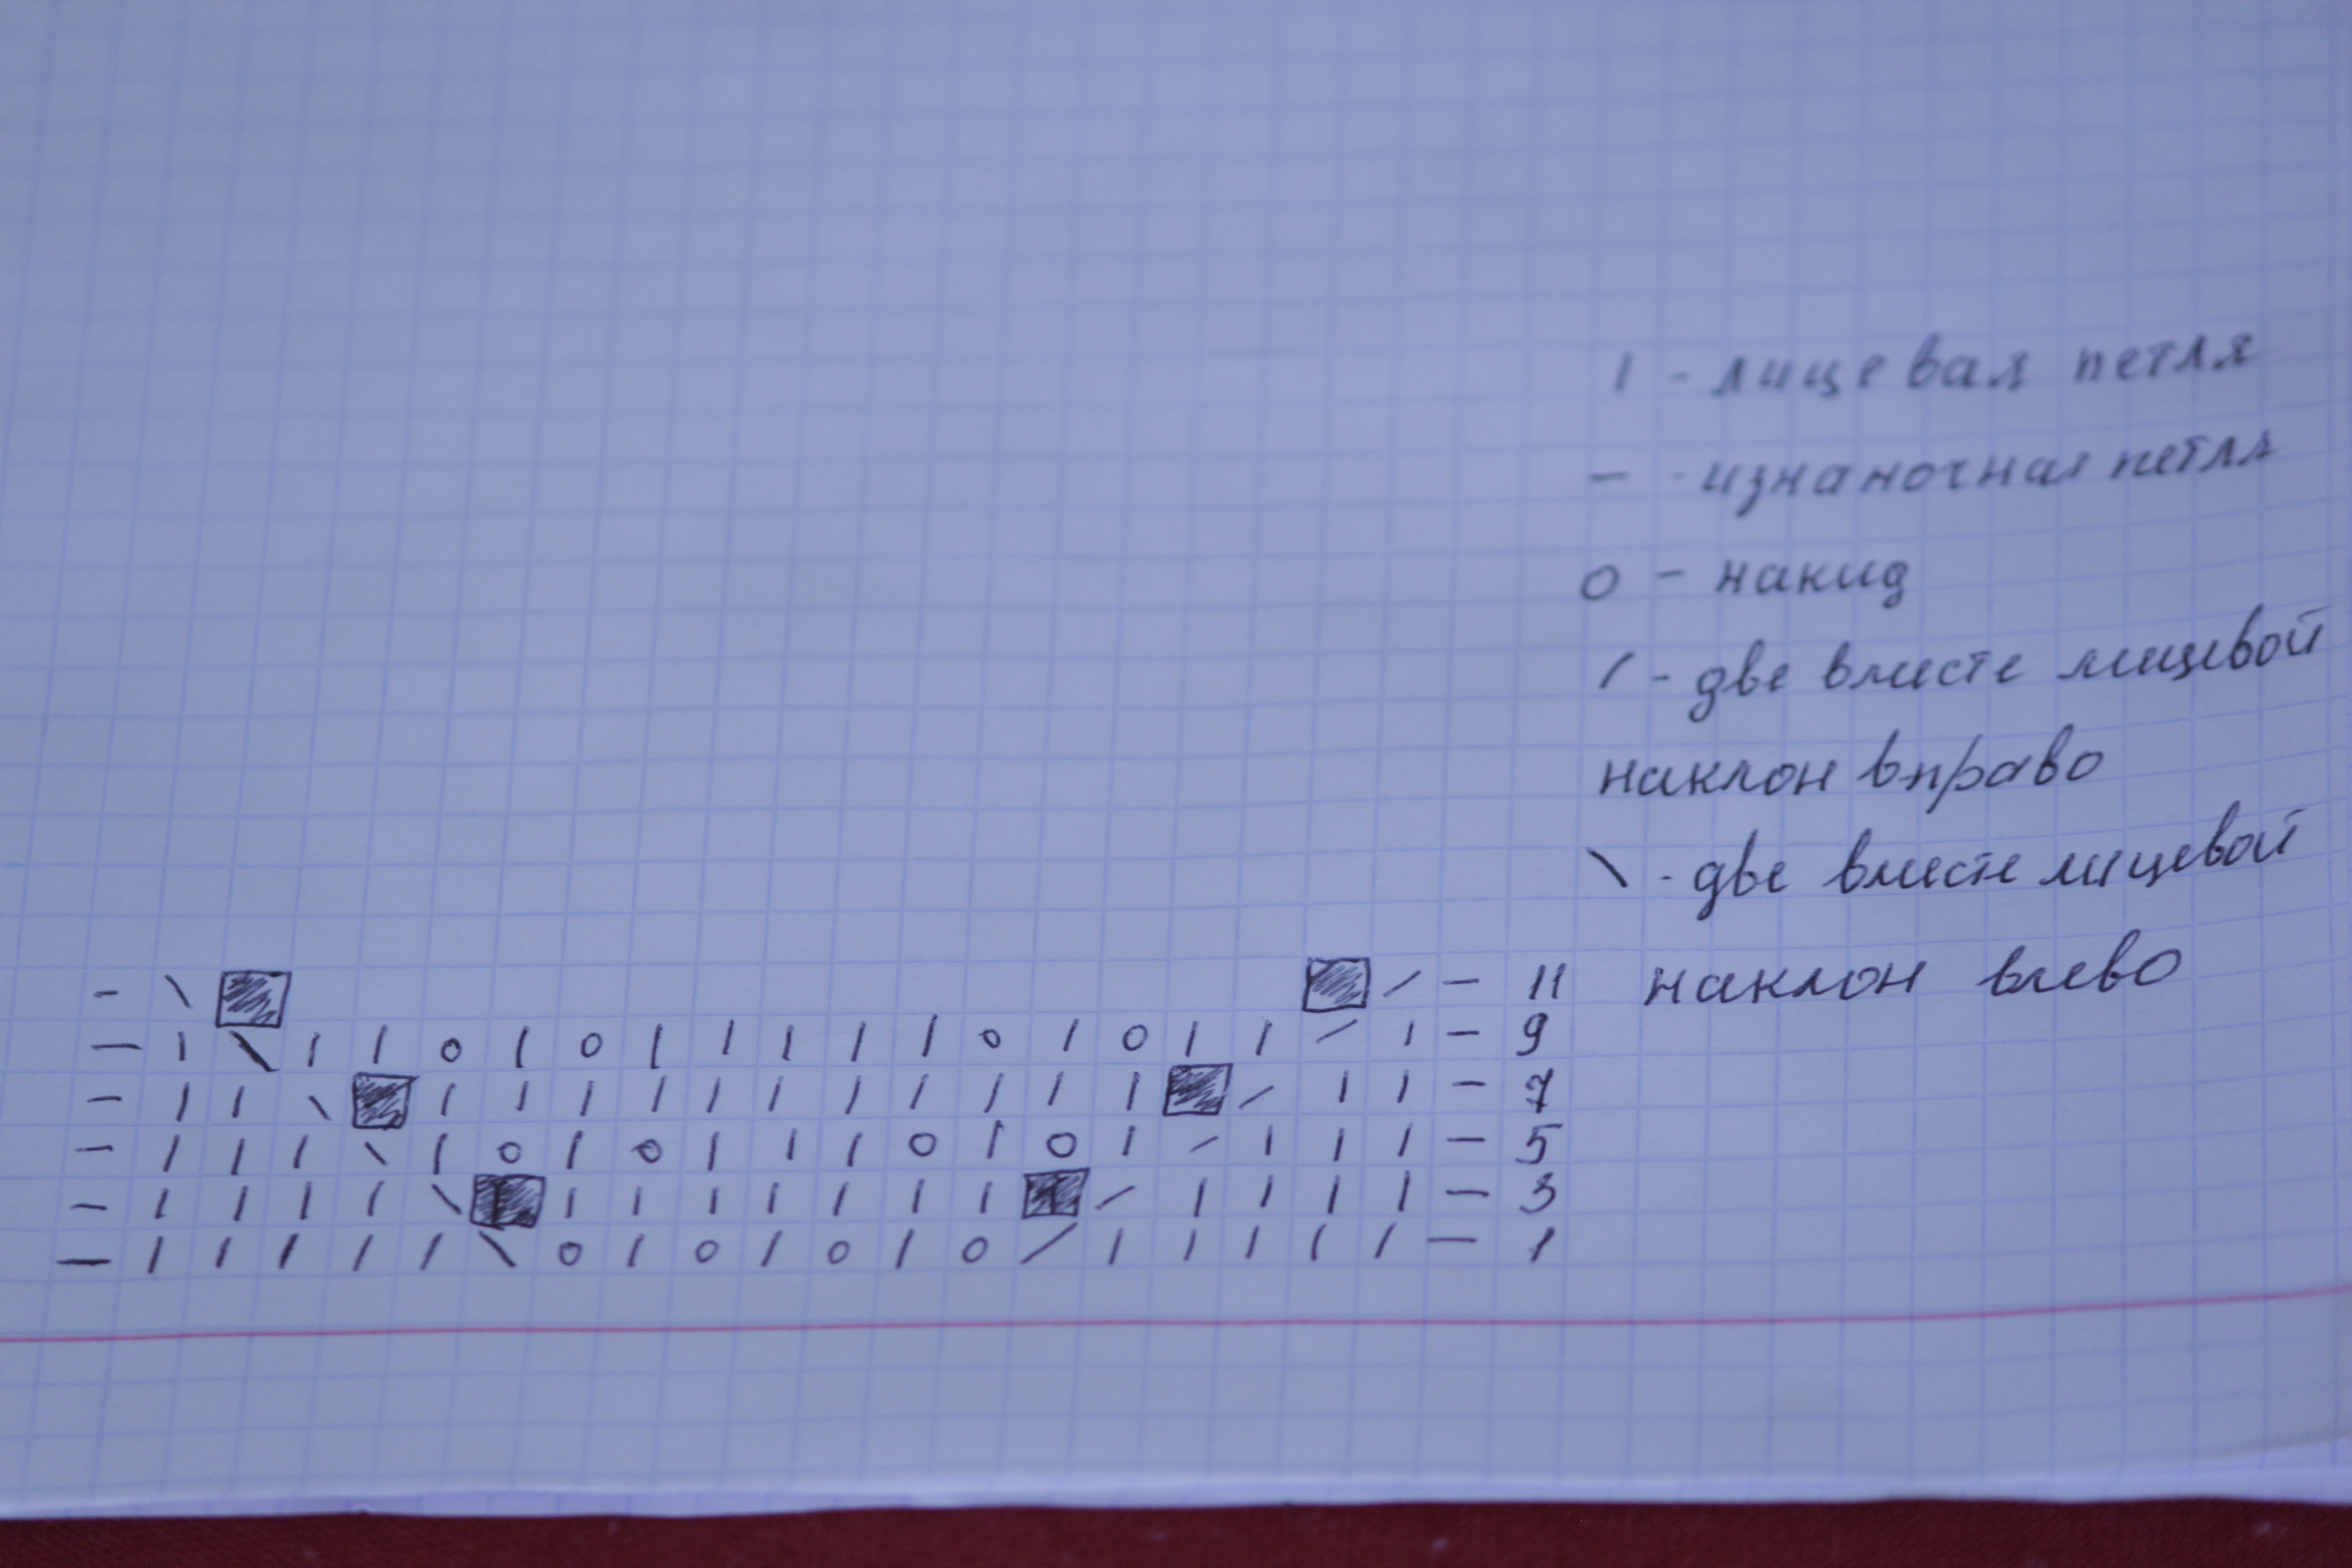 I - лицевая петля
— - изнаночная петля
O - накид
/ - две вместе лицевой
наклон вправо
\ - две вместе лицевой
наклон влево
- \ ■ ■ / - 11
— I \ I I O I O I I I I I O I O I I / I — 9
- I I \ ■ I I I I I I I I I I I ■ / I I - 7
- I I I \ I O I O I I I O I O I / I I I - 5
- I I I I \ ■ I I I I I I I ■ / I I I I - 3
— I I I I I \ O I O I O I O / I I I I I — 1